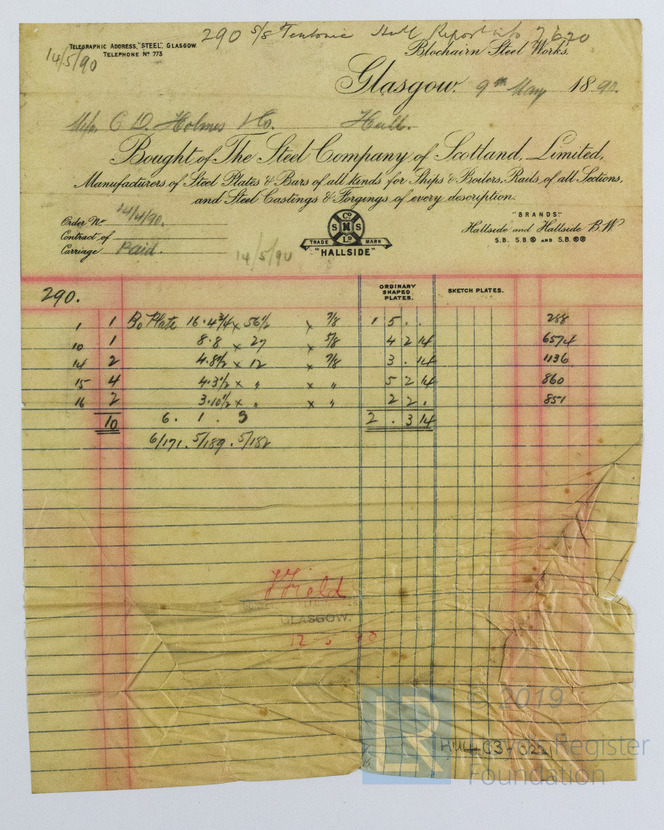 290 5/8 Teutonic Hull Report No 7620
TELEGRAPHIC ADDRESS, "STEEL", GLASGOW.
TELEPHONE Nº 773
14/5/90
Blochairn Steel Works.
Glasgow. 9th May 1890.
Messrs C. D. Holmes & Co. Hull.
Bought of The Steel Company of Scotland, Limited,
Manufacturers of Steel Plates & Bars of all kinds for Ships & Boilers, Rails of all Sections,
and Steel Castings & Forgings of every description.
Order Nº 14/4/90.
Contract of
Carriage Paid.
14/5/90
Cº
S M S
Lº
TRADE MARK
"HALLSIDE"
"BRANDS:"
Hallside and Hallside B.W
S.B. S.B.® AND S.B.®®
290.
ORDINARY SHAPED PLATES.
SKETCH PLATES.
1 1 Bo Plate 16.4 3/4 x 56 1/2 x 7/8 1 5 . . 288
10 1 8.8 x 27 x 5/8 4 2 14 6574
14 2 4.8 1/2 x 12 x 7/8 3 . 14 1136
15 4 4.3 1/2 x " x " 5 2 14 860
16 2 3.10 1/2 x " x " 2 2 . 851
10 6. 1. 3 2 . 3 14
6/171. 5/189. 5/182
Field
GLASGOW.
12 5 90
© 2019
HULL 63-0221
Lloyd's Register
Foundation